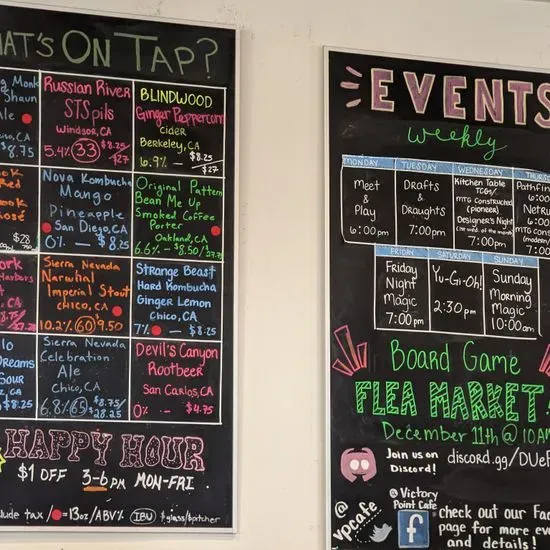 HAT'S ON TAP?
Monk
Shaun
Ale
CA
$8.75
Russian River
STS pils
Windsor, CA
5.4% 33 $8.25/$27
BLINDWOOD
Ginger Peppercorn
Cider
Berkeley, CA
6.9% — $8.25/$27
ook
Red
ook
Rosé
$28
Nova Kombucha
Mango
Pineapple
San Diego, CA
0% — $8.25
Original Pattern
Bean Me Up
Smoked Coffee
Porter
Oakland, CA
6.6% — $8.50/
ork
Harbors
CA
Sierra Nevada
Narwhal
Imperial Stout
Chico, CA
10.2% 60 9.50
Strange Beast
Hard Kombucha
Ginger Lemon
Chico, CA
7% — $8.25
lo
Dreams
Sour
CA
$8.25
Sierra Nevada
Celebration
Ale
Chico, CA
6.8% 65 $8.75/$28.25
Devil's Canyon
Rootbeer
San Carlos, CA
0% — $4.75
HAPPY HOUR
$1 OFF 3-6 PM MON-FRI
clude tax / = 13oz / ABV% IBU $glass/$pitcher
EVENTS
weekly
MONDAY
Meet
& Play
6:00pm
TUESDAY
Drafts
&
Draughts
7:00pm
WEDNESDAY
Kitchen Table
TCG/
MTG Constructed
(pioneer)
Designer's Night
7:00pm
THURS
Pathfin
6:00
Netru
6:00
MTG cons
(modern)
7:00
FRIDAY
Friday
Night
Magic
7:00pm
SATURDAY
Yu-Gi-Oh!
2:30pm
SUNDAY
Sunday
Morning
Magic
10:00am
Board Game
FLEA MARKET
December 11th @ 10AM
Join us on
Discord!
discord.gg/DUeF
@
vpcafe
@ Victory
Point Cafe
check out our Fac
page for more ev
and details!